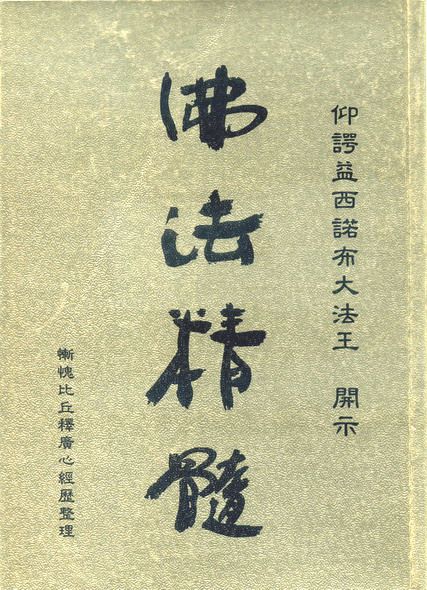 仰諤益西諾布大法王　開示
佛法精髓
慚愧比丘釋廣心經歷整理